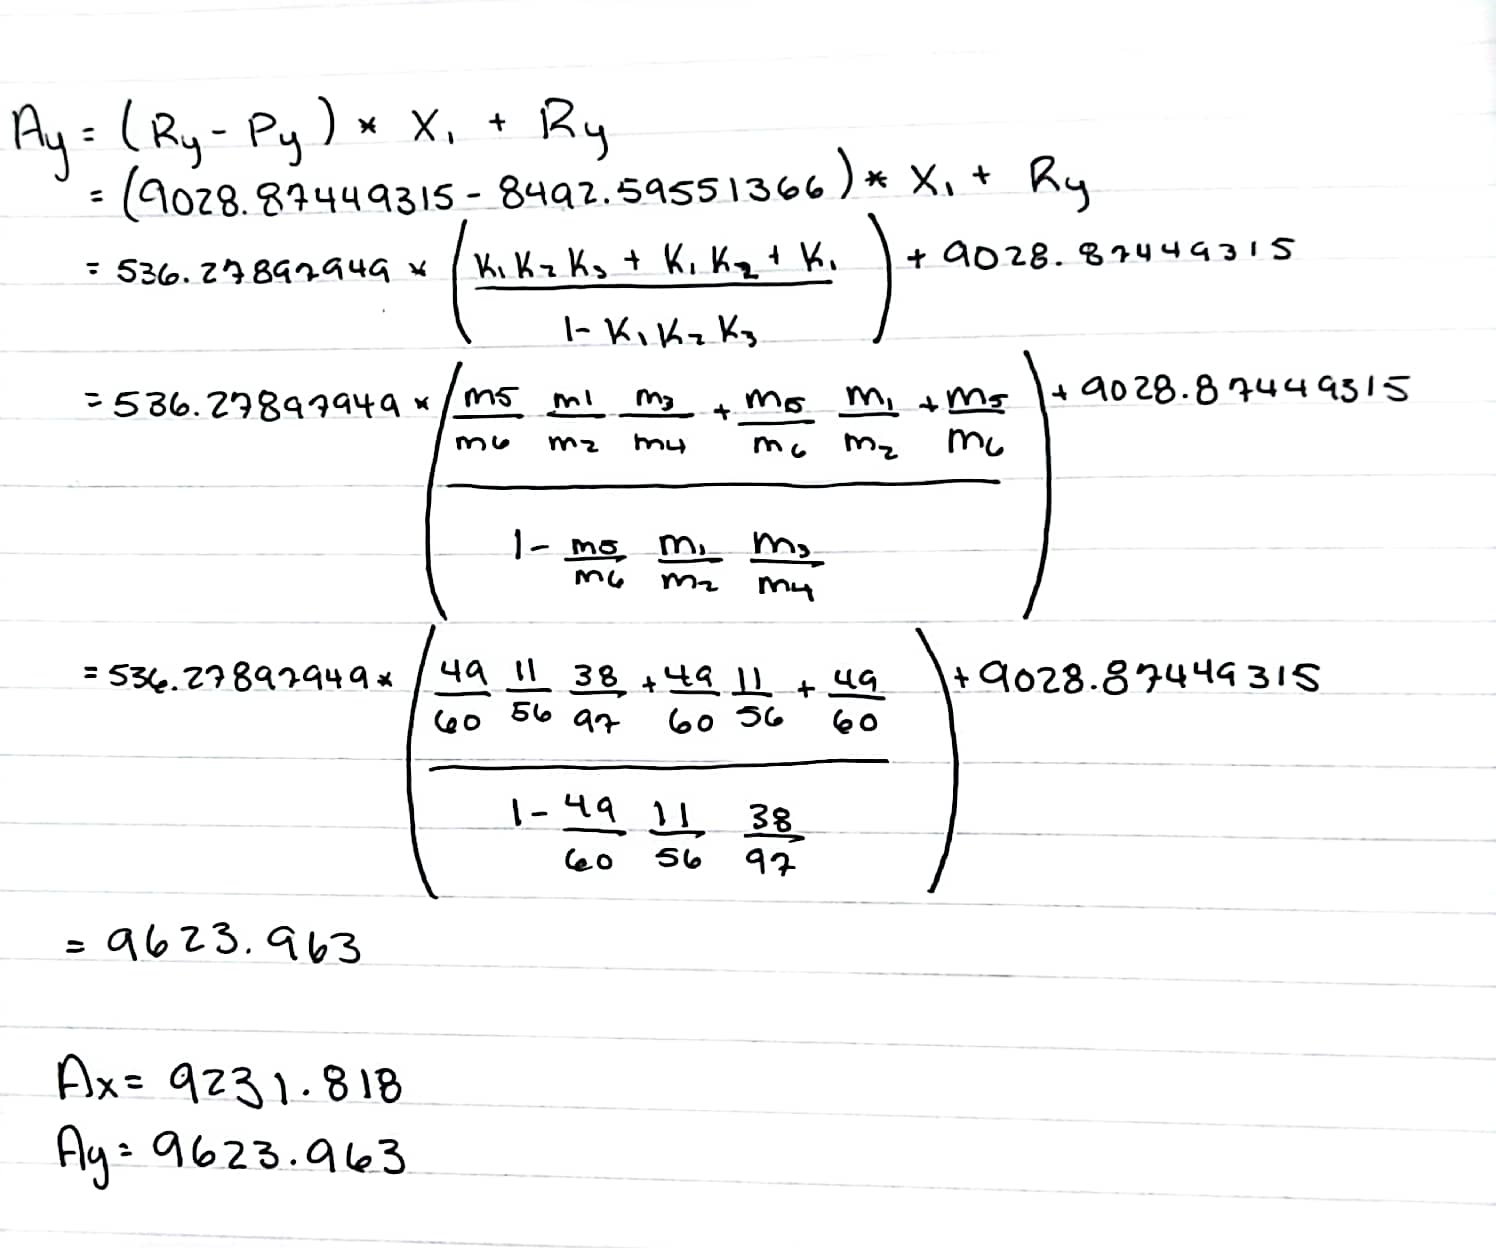 Ay = (Ry - Py) * X₁ + Ry
= (9028.87449315 - 8492.59551366) * X₁ + Ry
= 536.27897949 * (K₁K₂K₃ + K₁K₂ + K₁ / 1 - K₁K₂K₃) + 9028.87449315
= 536.27897949 * (m5/m6 m1/m2 m3/m4 + m5/m6 m1/m2 + m5/m6 / 1 - m5/m6 m1/m2 m3/m4) + 9028.87449315
= 536.27897949 * (49/60 11/56 38/97 + 49/60 11/56 + 49/60 / 1 - 49/60 11/56 38/97) + 9028.87449315
= 9623.963
Ax = 9231.818
Ay = 9623.963